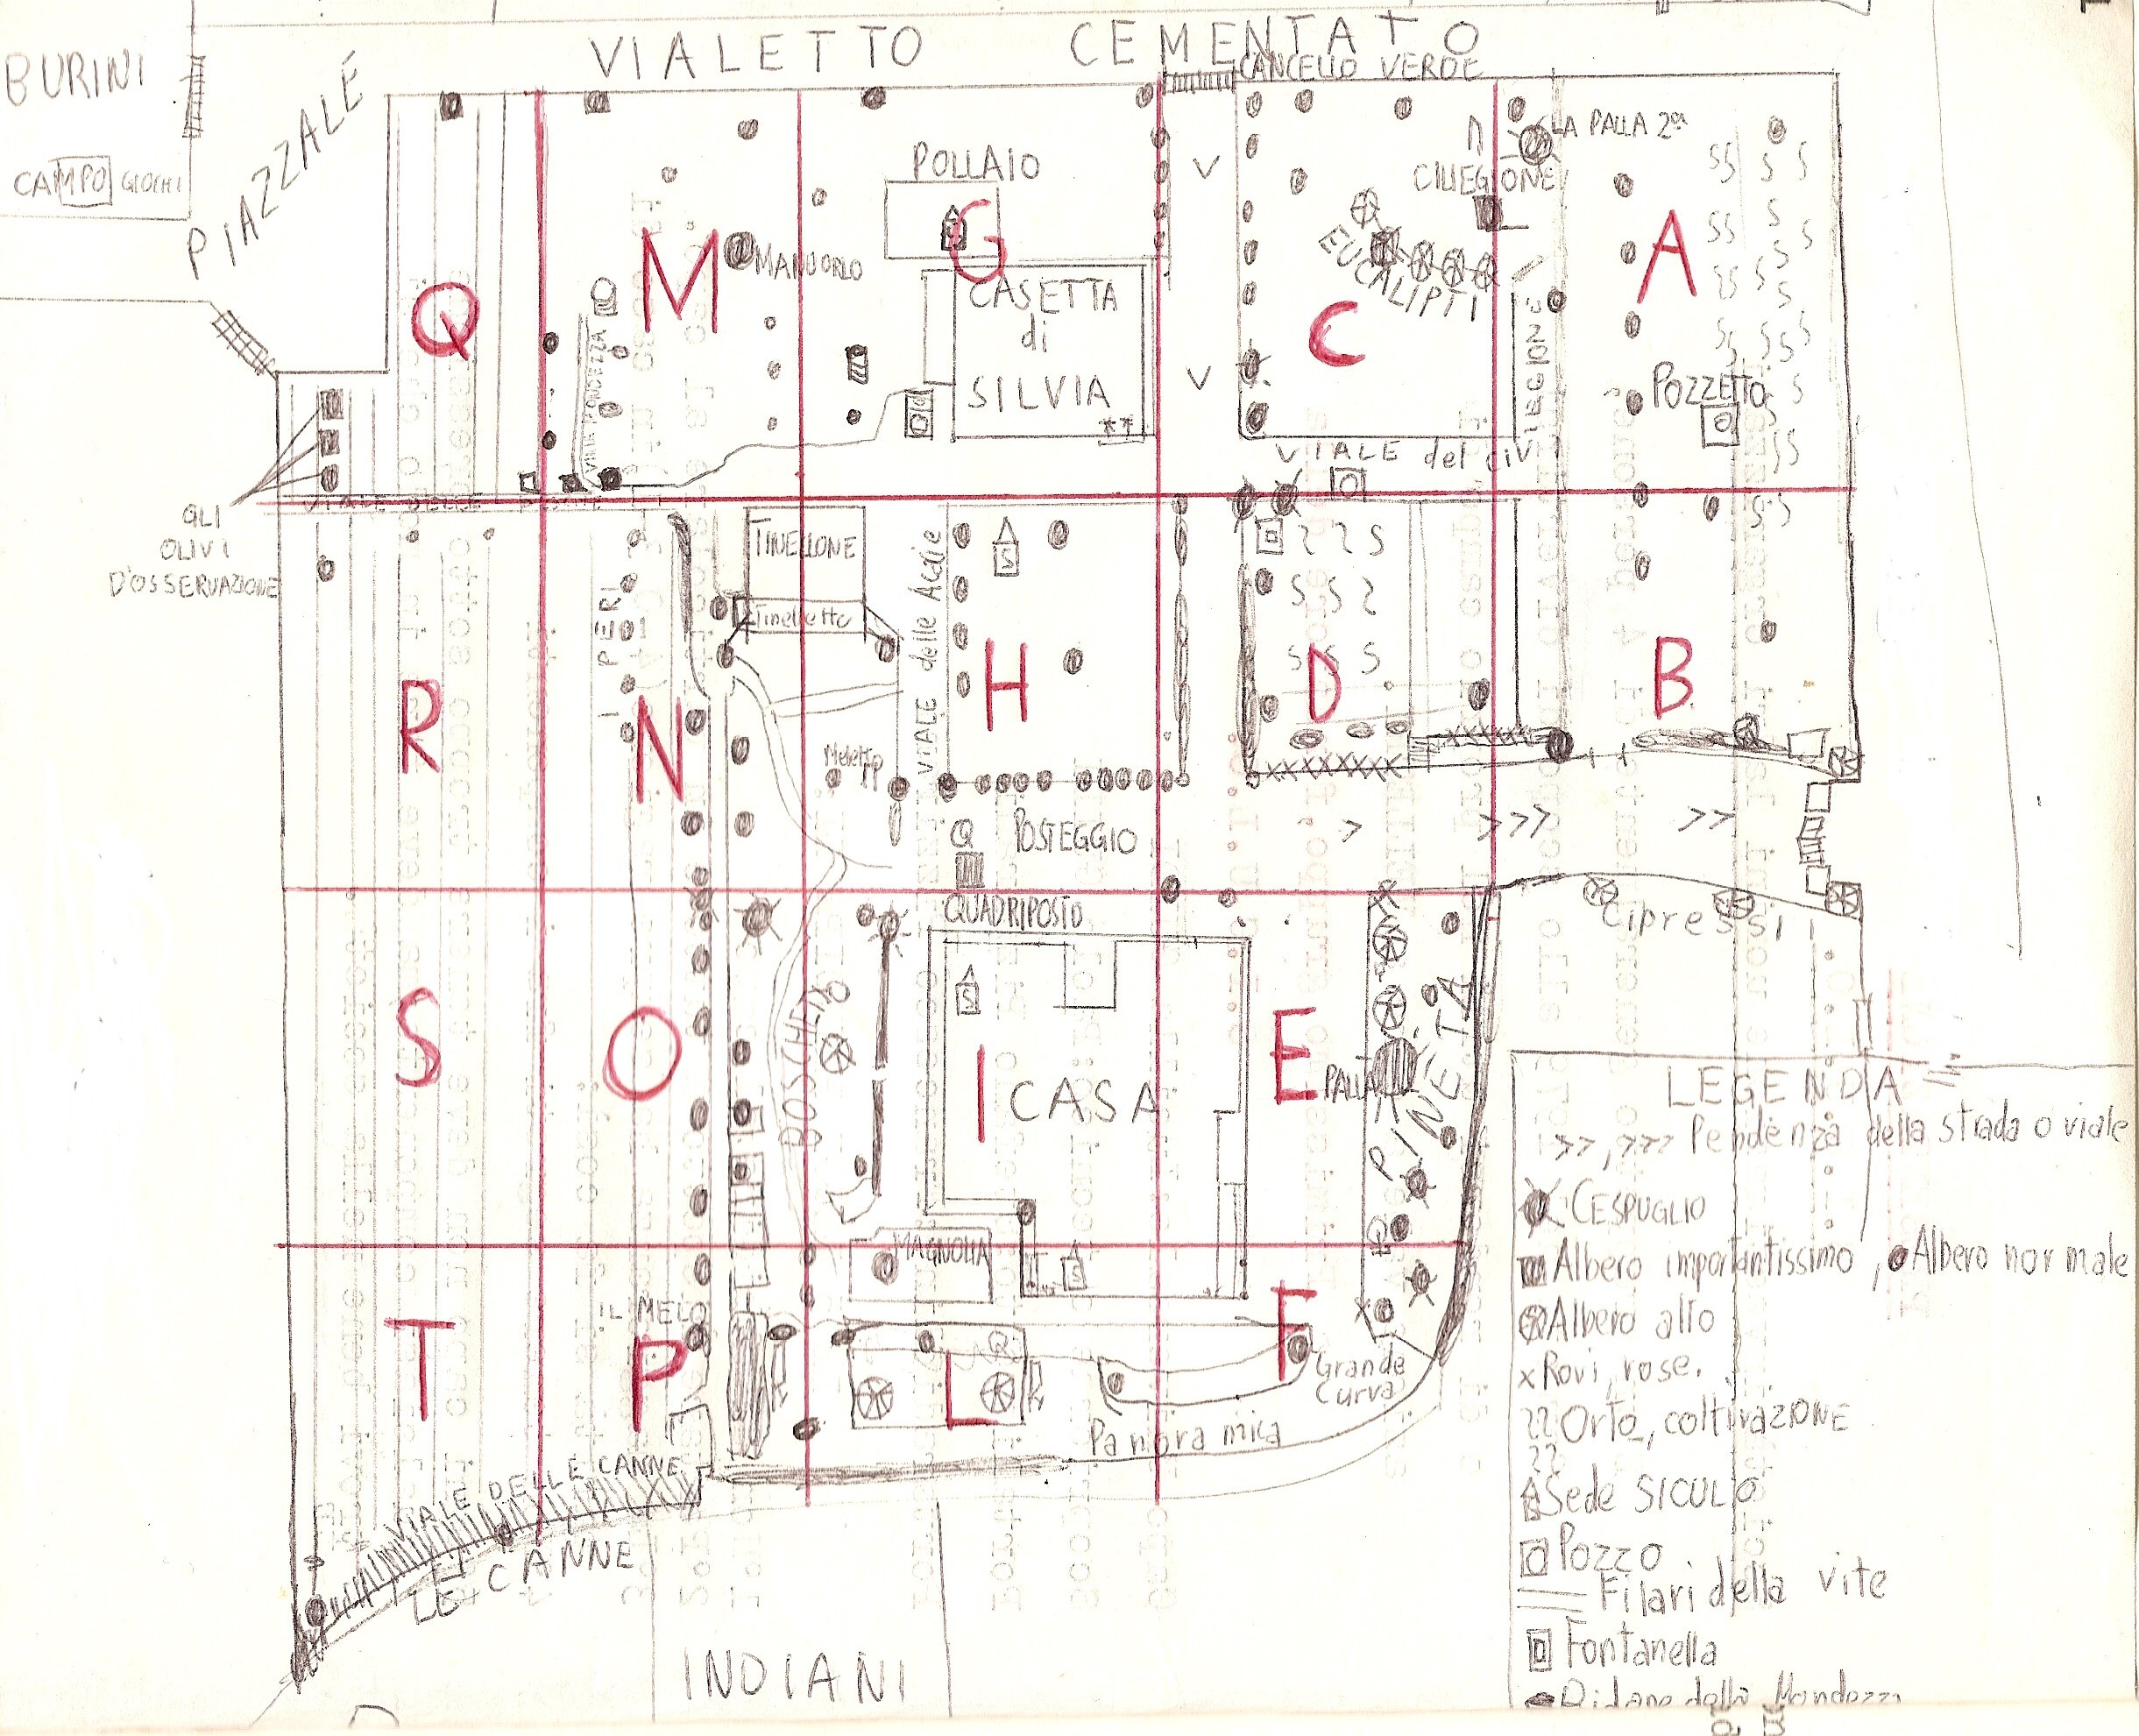 VIALETTO CEMENTATO
CANCELLO VERDE
BURINI
CAMPO GIOCHI
PIAZZALE
LA PALLA 2ª
CILIEGIONE
POLLAIO
EUCALIPTI
MANDORLO
Q
M
G
C
A
CASETTA
di
SILVIA
POZZETTO
VIALE del
GLI
OLIVI
D'OSSERVAZIONE
TINELLONE
Tinelletto
I PERI
VIALE delle Acacie
R
N
H
D
B
Meletto
Q
POSTEGGIO
> >>> >>
QUADRIPOSTO
Cipressi
S
O
I
E
BOSCHETTO
CASA
PALLA
PINETA
MAGNOLIA
IL MELO
T
P
L
F
Grande
Curva
Panoramica
VIALE DELLE CANNE
LE CANNE
INDIANI
LEGENDA
>>, >>> Pendenza della strada o viale
CESPUGLIO
Albero importantissimo, Albero normale
Albero alto
x Rovi, rose.
Orto, coltivazione
Sede SICULO
Pozzo
Filari della vite
Fontanella